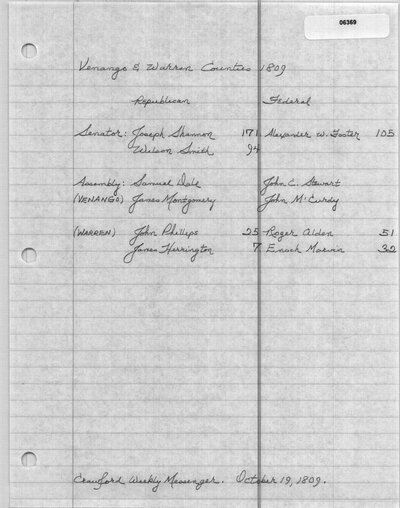 06369
Venango & Warren Counties 1809
Republican Federal
Senator: Joseph Shannon 171 Alexander W. Foster 105
Wilson Smith 94
Assembly: Samuel Dale John C. Stewart
(VENANGO) James Montgomery John McCurdy
(WARREN) John Phillips 25 Roger Alden 51
James Herrington 7 Enoch Marvin 32
Crawford Weekly Messenger. October 19, 1809.